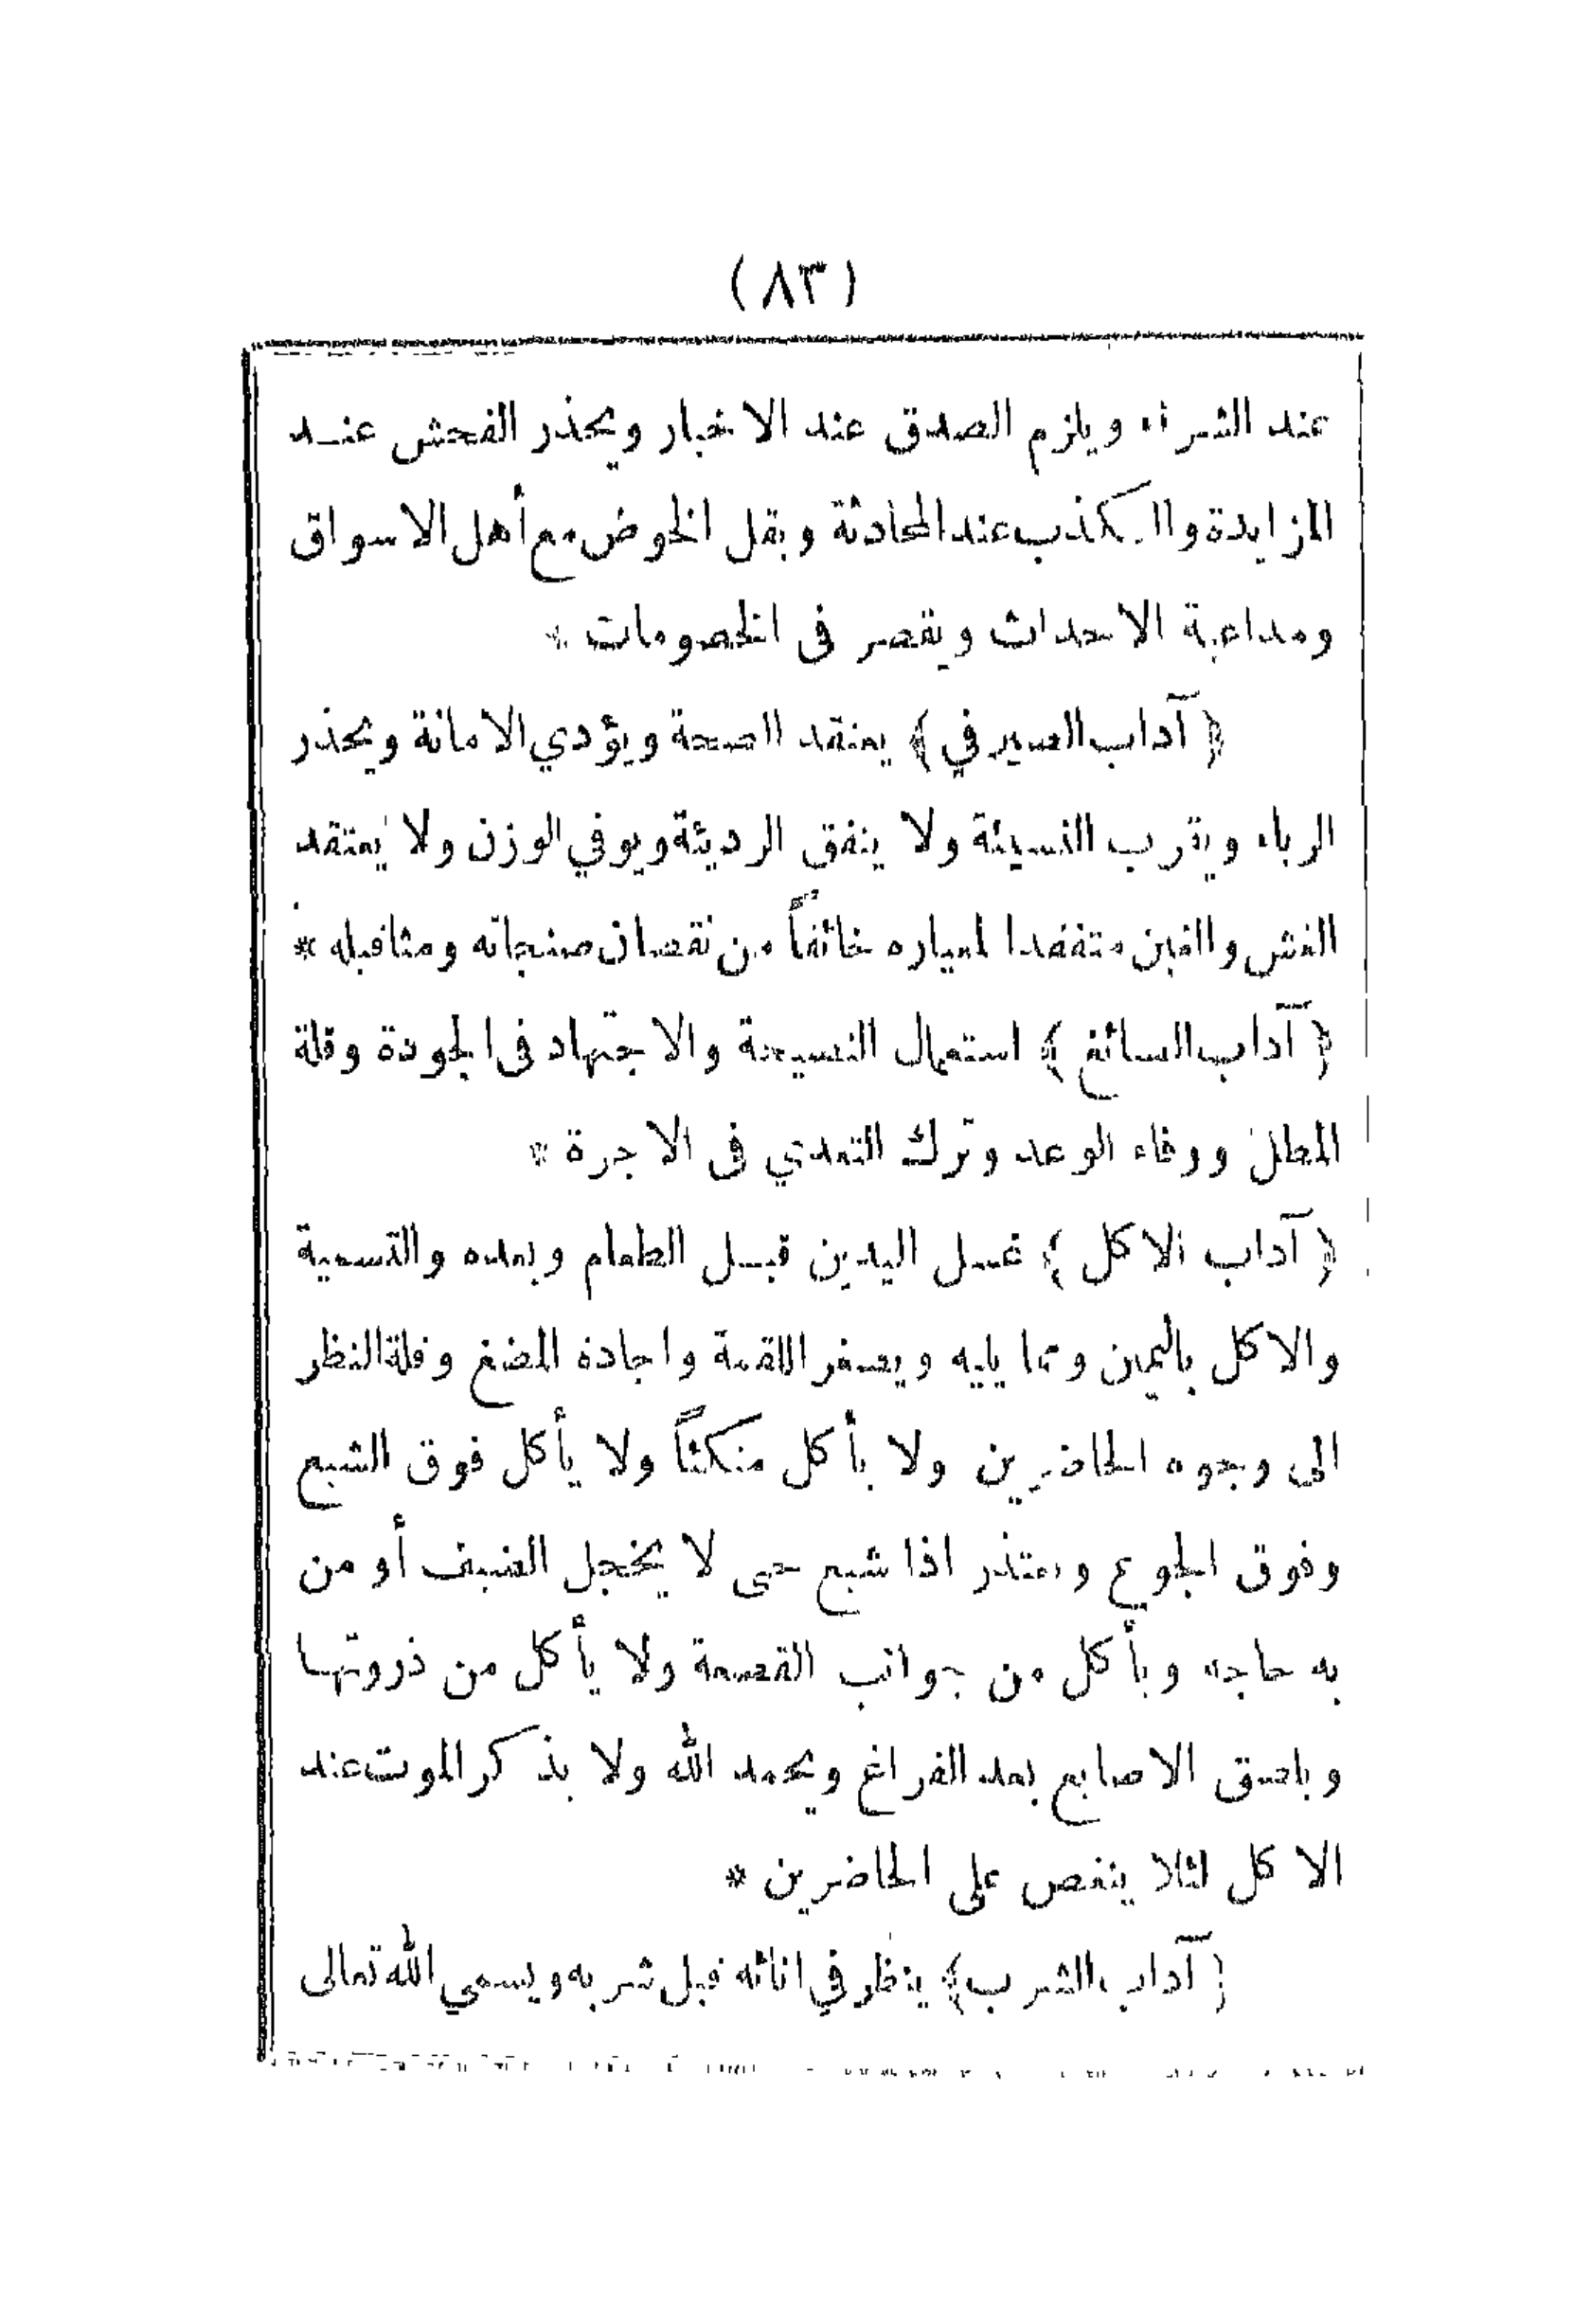 (٨٣)
عند الشراء ويلزم الصدق عند الاخبار ويحذر الفحش عنــد
المزايدة والكذب عند المحادثة ويقل الخوض مع أهل الاسواق
ومداعبة الاحداث ويقصر فى الخصومات *
﴿ آداب الصيرفي ﴾ يعتقد الصحة ويؤدي الامانة ويحذر
الرباء ويقرب النسيئة ولا ينفق الرديئة ويوفي الوزن ولا يعتقد
الغش والغبن متفقدا لمعياره خائفاً من نقصان صنجاته ومثاقيله *
﴿ آداب الصائغ ﴾ استعمال النصيحة والاجتهاد فى الجودة وقلة
المطل ووفاء الوعد وترك التعدي فى الاجرة *
﴿ آداب الاكل ﴾ غسل اليدين قبــل الطعام وبعده والتسمية
والاكل باليمين ومما يليه ويصغر اللقمة واجادة المضغ وقلة النظر
الى وجوه الحاضرين ولا يأكل متكئاً ولا يأكل فوق الشبع
وفوق الجوع ويعتذر اذا شبع حتى لا يخجل الضيف أو من
به حاجة ويأكل من جوانب القصعة ولا يأكل من ذروتهــا
ويلعق الاصابع بعد الفراغ ويحمد الله ولا يذكر الموت عند
الاكل لئلا ينغص على الحاضرين *
﴿ آداب الشرب ﴾ ينظر في انائه قبل شربه ويسمي الله تعالى